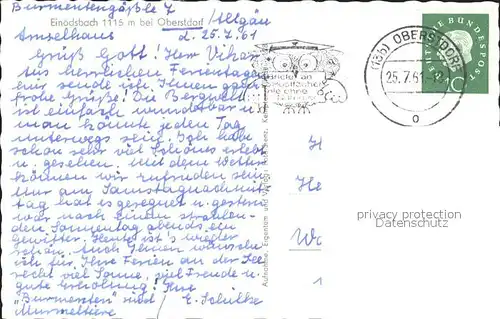 Burmentengäßle 7
Einödsbach 1115 m bei Oberstdorf / Allgäu
Amselhaus d. 25.7.61
Grüß Gott! Herr Vikar
Aus herrlichen Ferientagen
sende ich Ihnen
frohe Grüße! Die Bergwelt
ist einfach wunderbar u.
man könnte jeden Tag
unterwegs sein. Ich habe
schon sehr viel Schönes erlebt
u. gesehen. Mit dem Wetter
können wir zufrieden sein
Nur am Samstagnachmit-
tag hat es geregnet u. gestern
war nach einem strahlen-
den Sonnentag abends ein
Gewitter. Heute ist's wieder
schön. Auch Ihnen wünsche
ich für Ihre Ferien an der See
recht viel Sonne, viel Freude u.
gute Erholung! Ihre
E. Schülke
Murmeltiere
(13b) OBERSTDORF
25.7.61-12
o
DEUTSCHE BUNDESPOST
10
privacy protection
Datenschutz